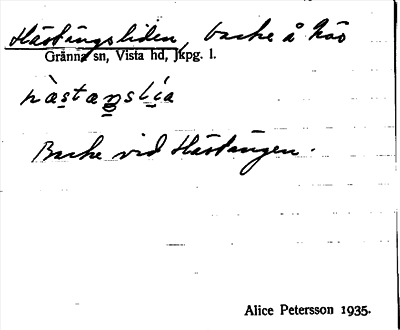 Hästängsliden, backe å häs
Gränna sn, Vista hd, Jkpg. l.
Backe vid Hästängen.
Alice Petersson 1935.